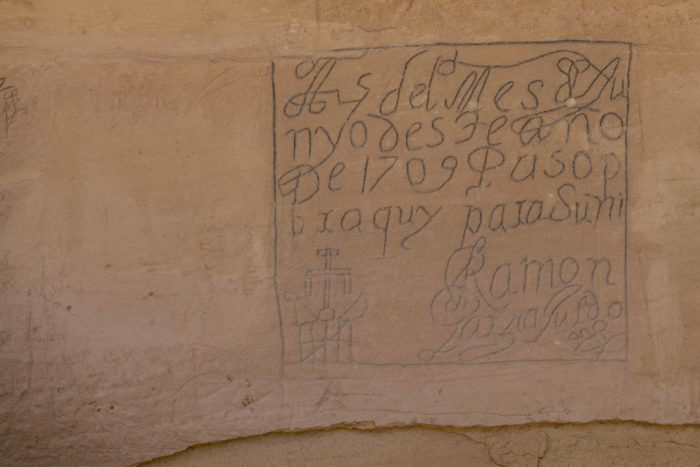 A 5 del Mes de Ju
nyo desTe año
De 1709 Paso p
or aquy para Suni
Ramon
Garzia Jurdo